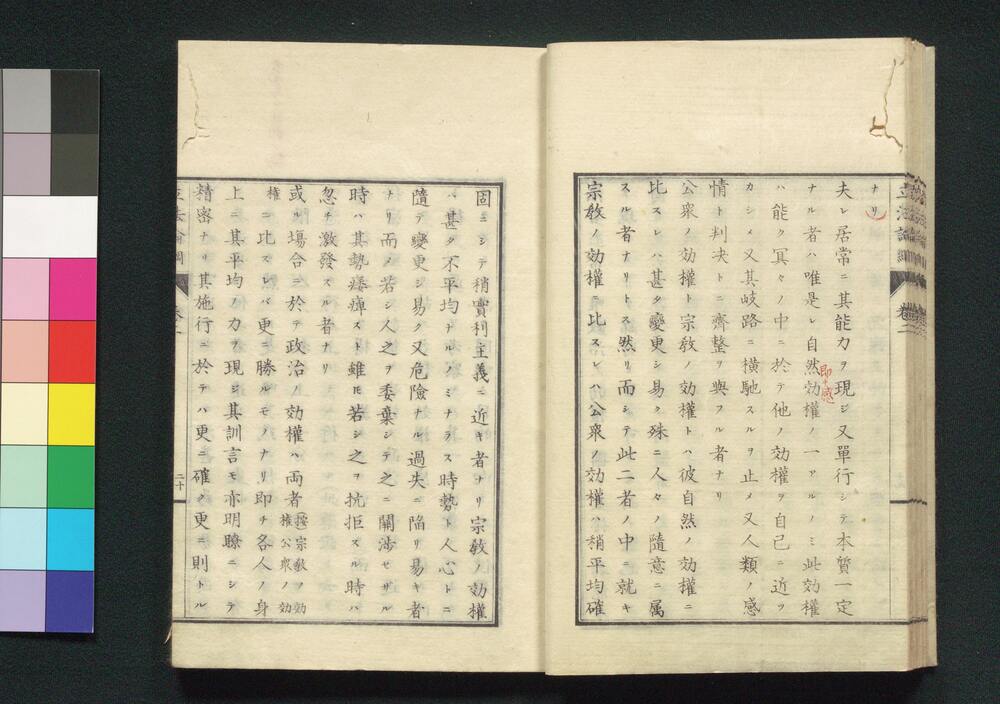 ナリ
夫レ居常ニ其能力ヲ現シ又單行シテ本質一定
ナル者ハ唯是レ自然効權ノ一アルノミ此効權
即チ感
ハ能ク冥々ノ中ニ於テ他ノ効權ヲ自己ニ近ツ
カシメ又其岐路ニ横馳スルヲ止メ又人類ノ感
情ト判决トニ齊整ヲ與フル者ナリ
公衆ノ効權ト宗敎ノ効權トハ彼自然ノ効權ニ
比スレハ甚タ變更シ易ク殊ニ人々ノ隨意ニ属
スル者ナリトス然リ而シテ此二者ノ中ニ就キ
宗敎ノ効權ニ比スレハ公衆ノ効權ハ稍平均確
立法論綱
卷二
固ニシテ稍實利主義ニ近キ者ナリ宗敎ノ効權
ハ甚タ不平均ナルノミナラス時勢ト人心トニ
隨テ變更シ易ク又危險ナル過失ニ陷リ易キ者
ナリ而メ若シ人之ヲ委棄シテ之ニ關渉セサル
時ハ其勢痿痺スト雖モ若シ之ヲ抗拒スル時ハ
忽チ激發スル者ナリ
或ル塲合ニ於テ政治ノ効權ハ両者(按)宗敎ノ効
權公衆ノ効
權ニ比スレバ更ニ勝ルモノナリ即チ各人ノ身
上ニ其平均ノ力ヲ現シ其訓言モ亦明瞭ニシテ
精密ナリ其施行ニ於テハ更ニ確ク更ニ則トル
立法論綱
卷二
二十